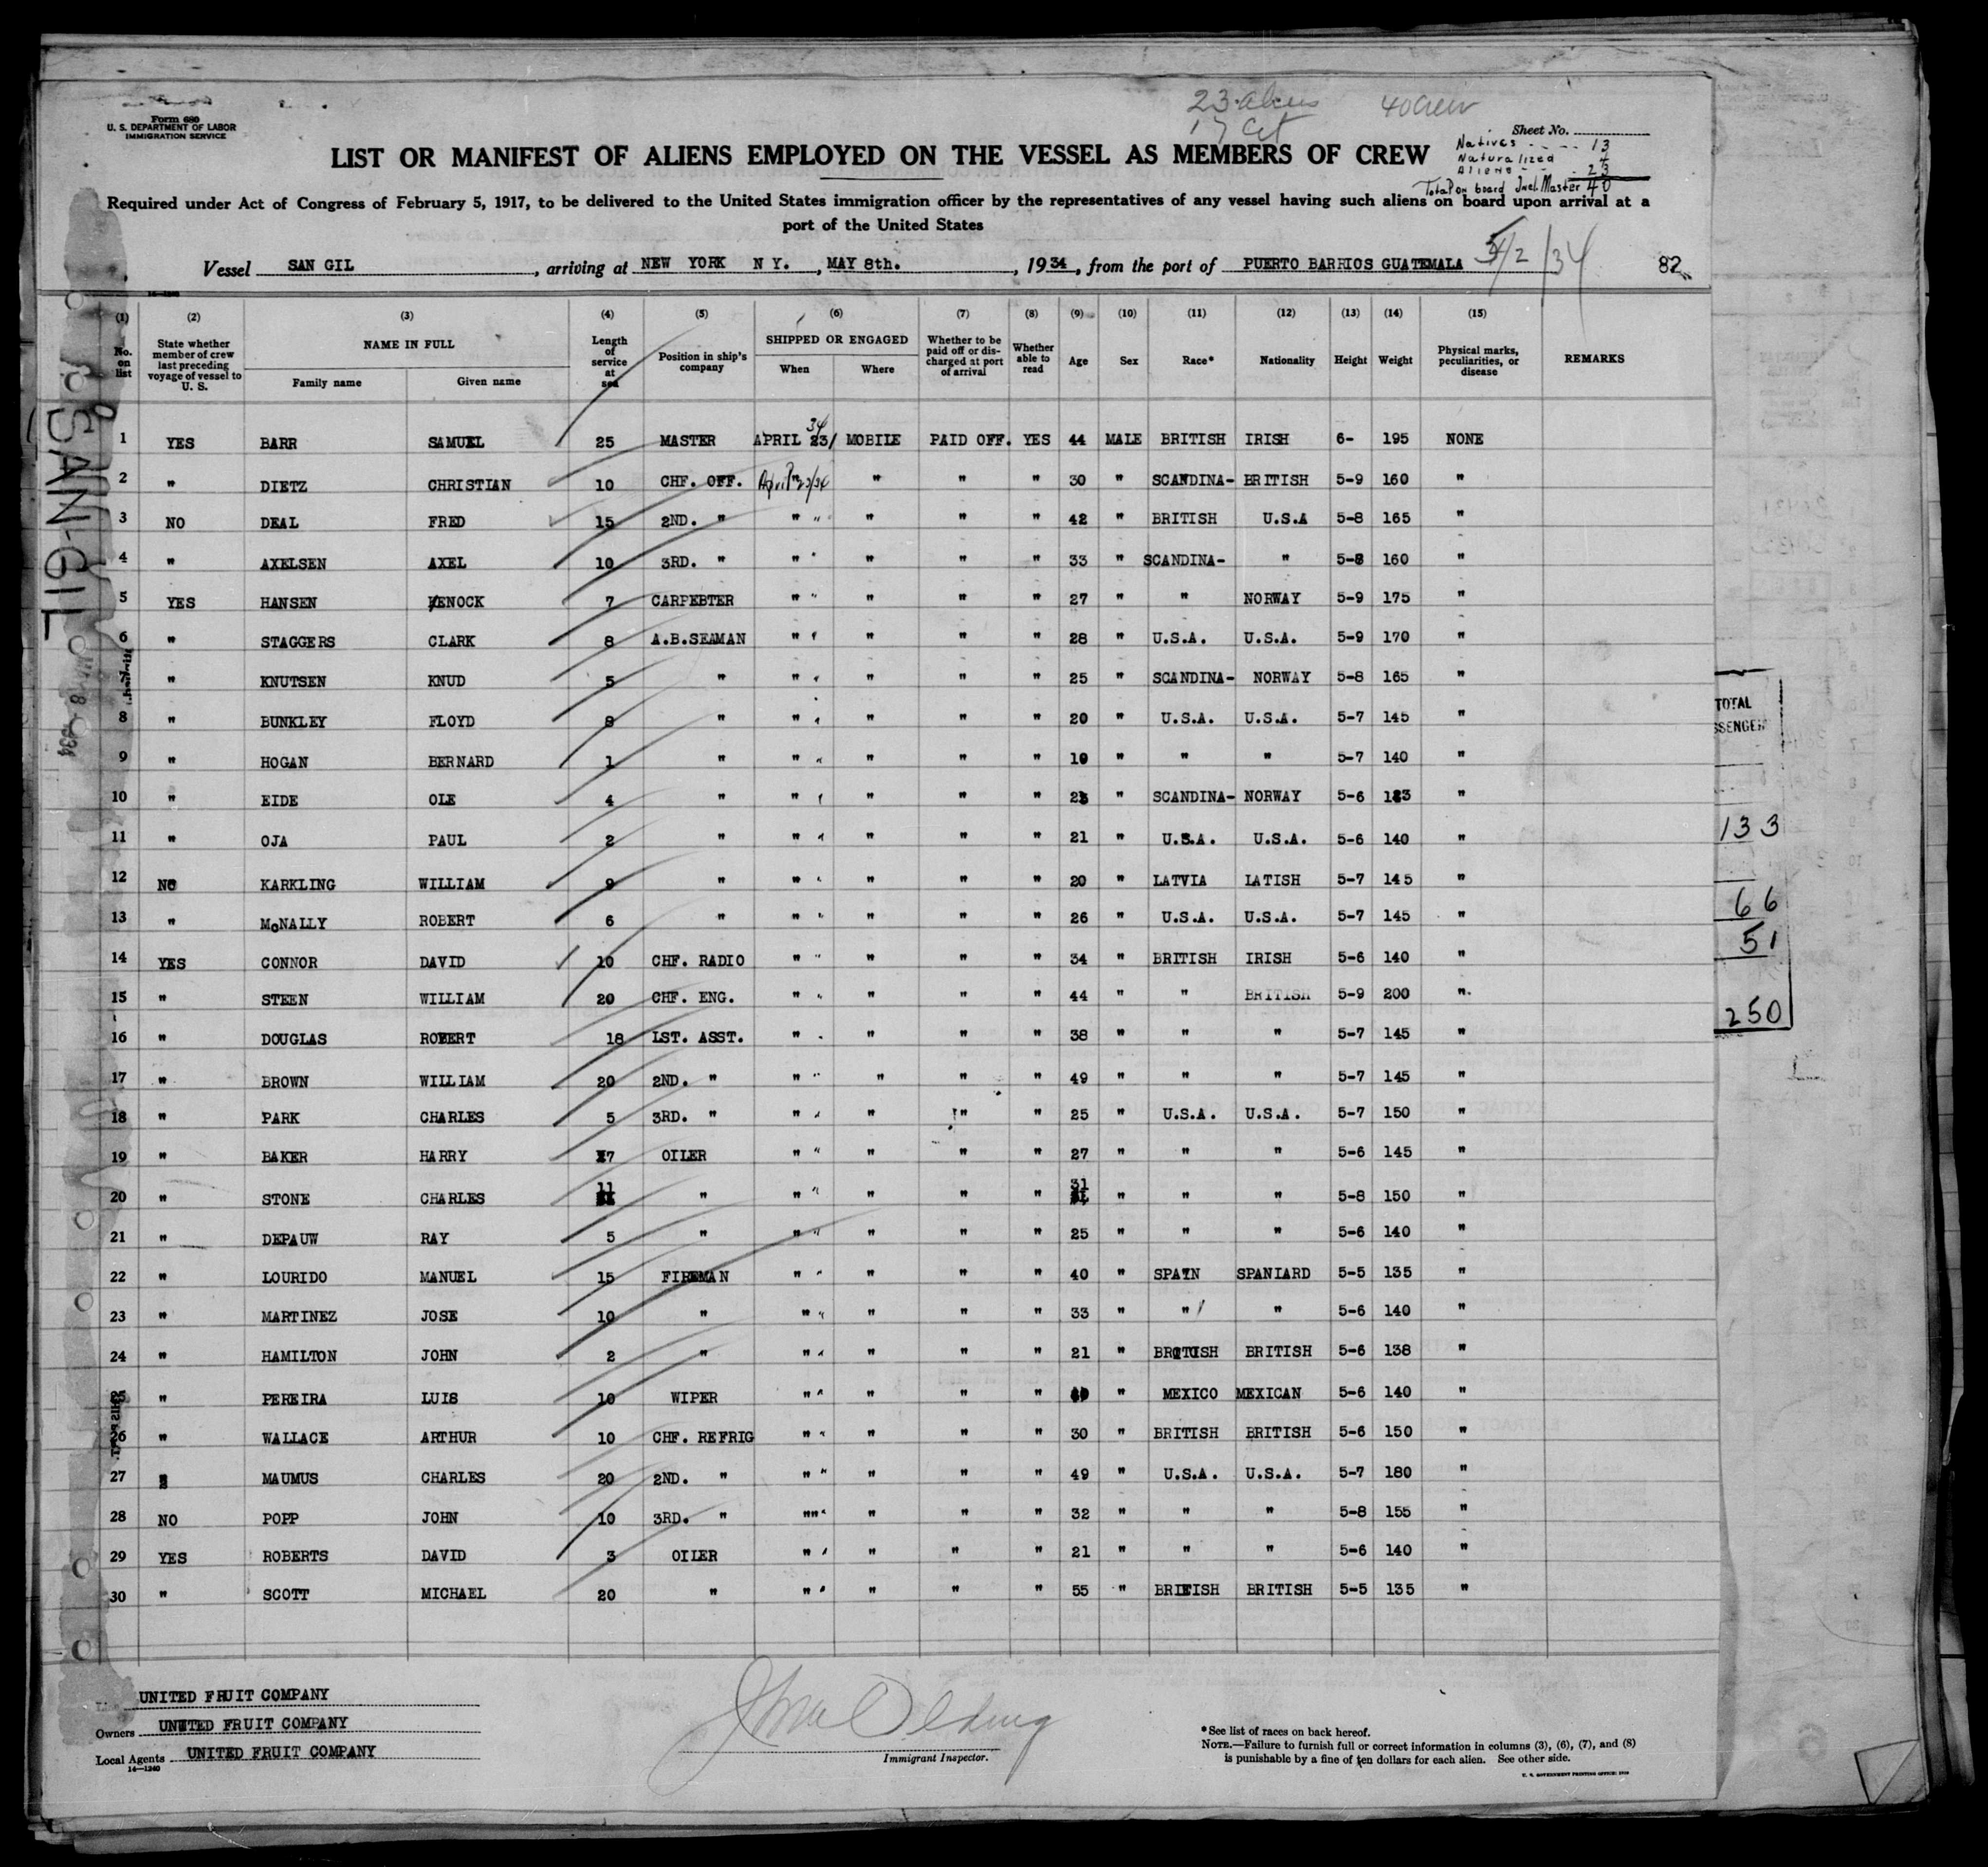 Form 680
U. S. DEPARTMENT OF LABOR
IMMIGRATION SERVICE
23 aliens 40 crew
17 Cit
Sheet No.
Natives 13
Naturalized 4
Aliens 23
Total on board Incl. Master 40
LIST OR MANIFEST OF ALIENS EMPLOYED ON THE VESSEL AS MEMBERS OF CREW
Required under Act of Congress of February 5, 1917, to be delivered to the United States immigration officer by the representatives of any vessel having such aliens on board upon arrival at a
port of the United States
Vessel SAN GIL, arriving at NEW YORK N Y., MAY 8th., 1934, from the port of PUERTO BARRIOS GUATEMALA 5/2/34 82
(1) (2) (3) (4) (5) (6) (7) (8) (9) (10) (11) (12) (13) (14) (15)
No. on list
State whether member of crew last preceding voyage of vessel to U. S.
NAME IN FULL
Family name Given name
Length of service at sea
Position in ship's company
SHIPPED OR ENGAGED
When Where
Whether to be paid off or discharged at port of arrival
Whether able to read
Age Sex Race* Nationality Height Weight
Physical marks, peculiarities, or disease
REMARKS
1 YES BARR SAMUEL 25 MASTER APRIL 23/34 MOBILE PAID OFF. YES 44 MALE BRITISH IRISH 6- 195 NONE
2 " DIETZ CHRISTIAN 10 CHF. OFF. April 23/34 " " " 30 " SCANDINA- BRITISH 5-9 160 "
3 NO DEAL FRED 15 2ND. " " " " " " 42 " BRITISH U.S.A 5-8 165 "
4 " AXELSEN AXEL 10 3RD. " " " " " " 33 " SCANDINA- " 5-8 160 "
5 YES HANSEN HENOCK 7 CARPEBTER " " " " " 27 " " NORWAY 5-9 175 "
6 " STAGGERS CLARK 8 A.B.SEAMAN " " " " " 28 " U.S.A. U.S.A. 5-9 170 "
7 " KNUTSEN KNUD 5 " " " " " " 25 " SCANDINA- NORWAY 5-8 165 "
8 " BUNKLEY FLOYD 8 " " " " " " 20 " U.S.A. U.S.A. 5-7 145 "
9 " HOGAN BERNARD 1 " " " " " " 19 " " " 5-7 140 "
10 " EIDE OLE 4 " " " " " " 23 " SCANDINA- NORWAY 5-6 133 "
11 " OJA PAUL 2 " " " " " " 21 " U.S.A. U.S.A. 5-6 140 "
12 NO KARKLING WILLIAM 9 " " " " " " 20 " LATVIA LATISH 5-7 145 "
13 " McNALLY ROBERT 6 " " " " " " 26 " U.S.A. U.S.A. 5-7 145 "
14 YES CONNOR DAVID 10 CHF. RADIO " " " " " 34 " BRITISH IRISH 5-6 140 "
15 " STEEN WILLIAM 20 CHF. ENG. " " " " " 44 " " BRITISH 5-9 200 "
16 " DOUGLAS ROBERT 18 1ST. ASST. " " " " " 38 " " " 5-7 145 "
17 " BROWN WILLIAM 20 2ND. " " " " " " 49 " " " 5-7 145 "
18 " PARK CHARLES 5 3RD. " " " " " " 25 " U.S.A. U.S.A. 5-7 150 "
19 " BAKER HARRY 7 OILER " " " " " 27 " " " 5-6 145 "
20 " STONE CHARLES 11 " " " " " " 31 " " " 5-8 150 "
21 " DEPAUW RAY 5 " " " " " " 25 " " " 5-6 140 "
22 " LOURIDO MANUEL 15 FIREMAN " " " " " 40 " SPAIN SPANIARD 5-5 135 "
23 " MARTINEZ JOSE 10 " " " " " " 33 " " " 5-6 140 "
24 " HAMILTON JOHN 2 " " " " " " 21 " BRITISH BRITISH 5-6 138 "
25 " PEREIRA LUIS 10 WIPER " " " " " " MEXICO MEXICAN 5-6 140 "
26 " WALLACE ARTHUR 10 CHF. REFRIG " " " " " 30 " BRITISH BRITISH 5-6 150 "
27 " MAUMUS CHARLES 20 2ND. " " " " " " 49 " U.S.A. U.S.A. 5-7 180 "
28 NO POPP JOHN 10 3RD. " " " " " " 32 " " " 5-8 155 "
29 YES ROBERTS DAVID 3 OILER " " " " " 21 " " " 5-6 140 "
30 " SCOTT MICHAEL 20 " " " " " " 55 " BRITISH BRITISH 5-5 135 "
SAN GIL
TOTAL
133
66
51
250
UNITED FRUIT COMPANY
Owners UNITED FRUIT COMPANY
Local Agents UNITED FRUIT COMPANY
14—1240
Immigrant Inspector.
*See list of races on back hereof.
NOTE.—Failure to furnish full or correct information in columns (3), (6), (7), and (8)
is punishable by a fine of ten dollars for each alien. See other side.
U. S. GOVERNMENT PRINTING OFFICE: 1930